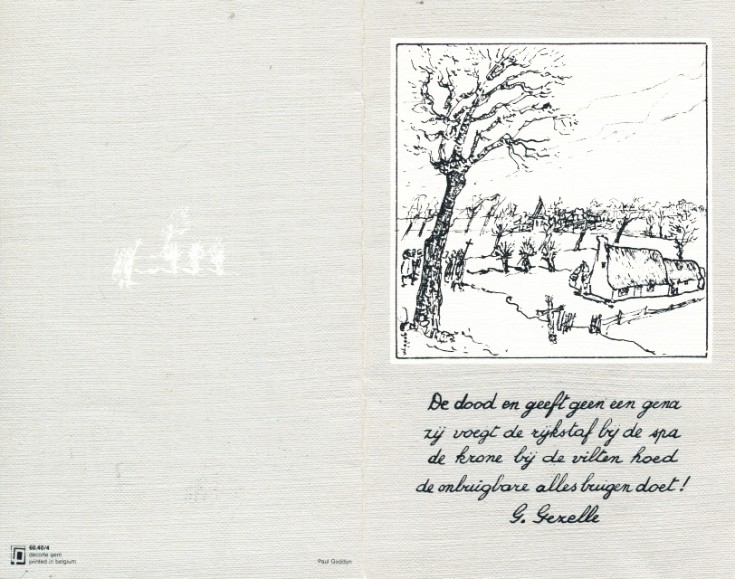 De dood en geeft geen een gena
zij voegt de rijkstaf bij de spa
de krone bij de vilten hoed
de onbuigbare alles buigen doet!
G. Gezelle
60.40/4
decorte gent
printed in belgium
Paul Geddyn